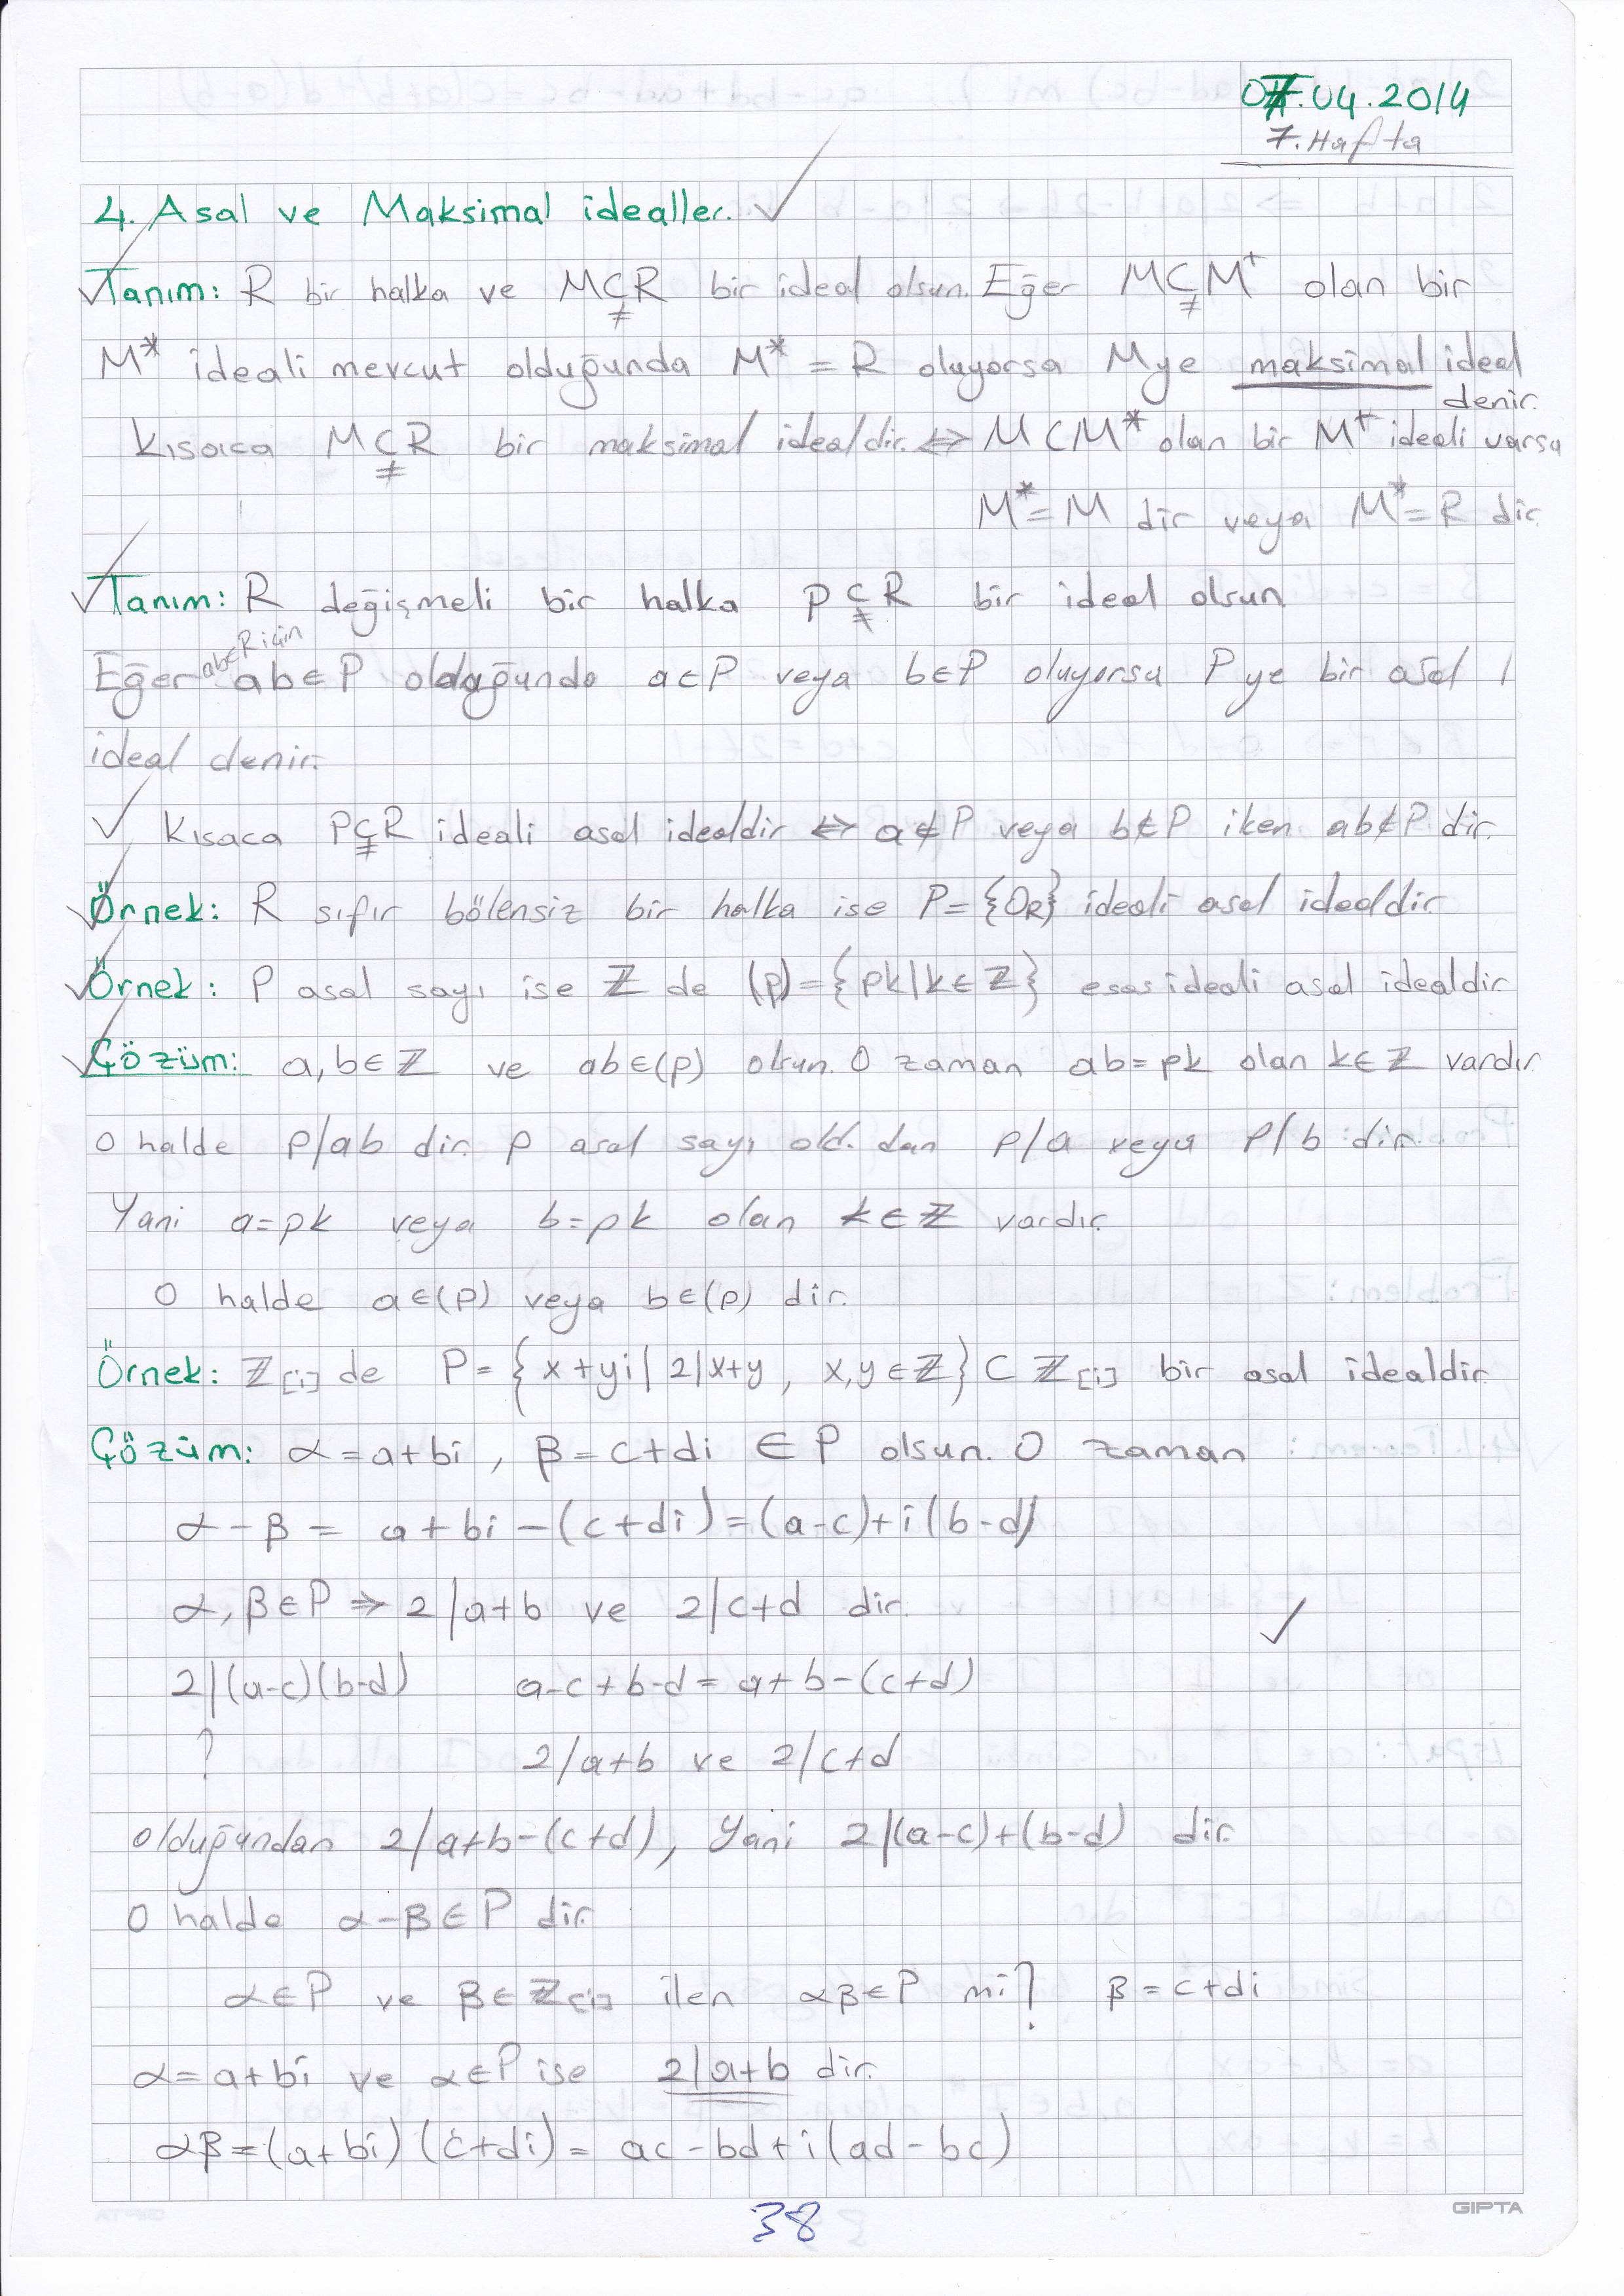 07.04.2014
7. Hafta
4. Asal ve Maksimal idealler. ✓
Tanım: R bir halka ve M⊊R bir ideal olsun. Eğer M⊊M* olan bir
M* ideali mevcut olduğunda M* = R oluyorsa M ye maksimal ideal
denir.
Kısaca M⊊R bir maksimal idealdir. ⇔ M⊂M* olan bir M* ideali varsa
M*=M dir veya M*=R dir.
Tanım: R değişmeli bir halka P⊊R bir ideal olsun
ab∈R için
Eğer ab∈P olduğunda a∈P veya b∈P oluyorsa P ye bir asal
ideal denir.
✓ Kısaca P⊊R ideali asal idealdir ⇔ a∉P veya b∉P iken ab∉P dir.
Örnek: R sıfır bölensiz bir halka ise P={0R} ideali asal idealdir.
Örnek: P asal sayı ise ℤ de (p)={pk|k∈ℤ} esas ideali asal idealdir.
Çözüm: a,b∈ℤ ve ab∈(p) olsun. O zaman ab=pk olan k∈ℤ vardır.
O halde p/ab dir. p asal sayı old. dan p/a veya p/b dir.
Yani a=pk veya b=pk olan k∈ℤ vardır.
O halde a∈(p) veya b∈(p) dir.
Örnek: ℤ[i] de P={x+yi| 2|x+y, x,y∈ℤ}⊂ℤ[i] bir asal idealdir.
Çözüm: α=a+bi, β=c+di ∈P olsun. O zaman
α-β = a+bi-(c+di)=(a-c)+i(b-d)
α,β∈P ⇒ 2|a+b ve 2|c+d dir.
2|(a-c)(b-d) a-c+b-d=a+b-(c+d)
? 2/a+b ve 2/c+d
olduğundan 2/a+b-(c+d), Yani 2|(a-c)+(b-d) dir.
O halde α-β∈P dir.
α∈P ve β∈ℤ[i] ilen αβ∈P mi? β=c+di
α=a+bi ve α∈P ise 2|a+b dir.
αβ=(a+bi)(c+di)= ac-bd+i(ad-bc)
38
GIPTA